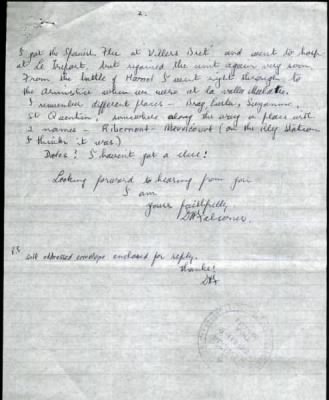 2.
I got the Spanish Flue at Villers Bret and went to hosp
at Le Treport, but rejoined the unit again very soon.
From the battle of Hamel I went right through to
the Armistice when we were at la vallee Mulatre.
I remember different places - Bray, Curlu, Suzanne,
St Quentin, somewhere along the way a place with
2 names - Ribemont - Mericourt (on the rly station
I think it was)
Dates! I haven't got a clue!
Looking forward to hearing from you
I am
yours faithfully
D Falconer.
PS self addressed envelope enclosed for reply.
Thanks!